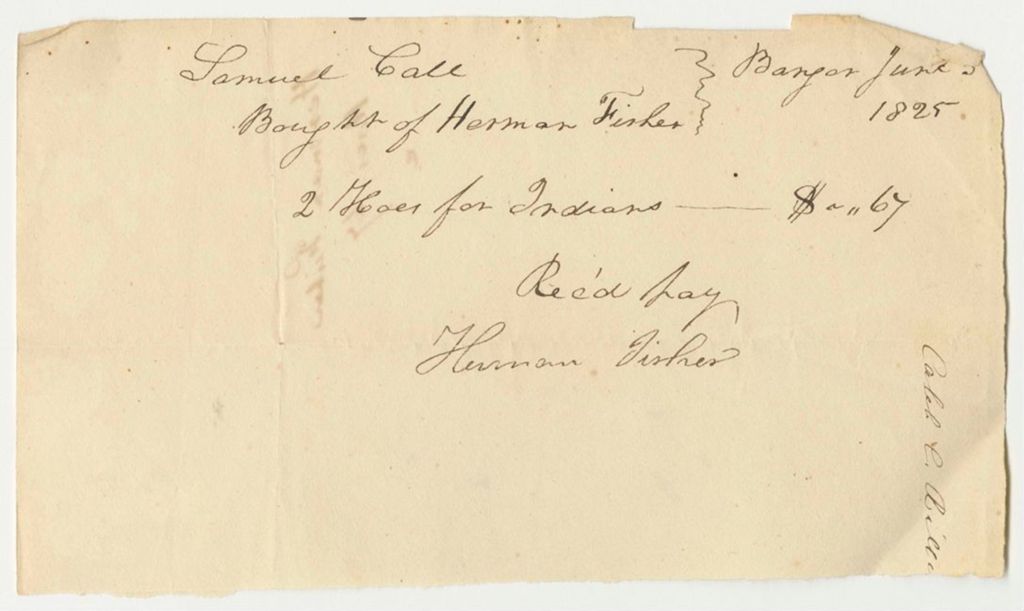 Samuel Call
Bangor June
1825
Bought of Herman Fisher
2 Hoes for Indians — $ 0 „ 67
Rec'd pay
Herman Fisher
Caleb C.